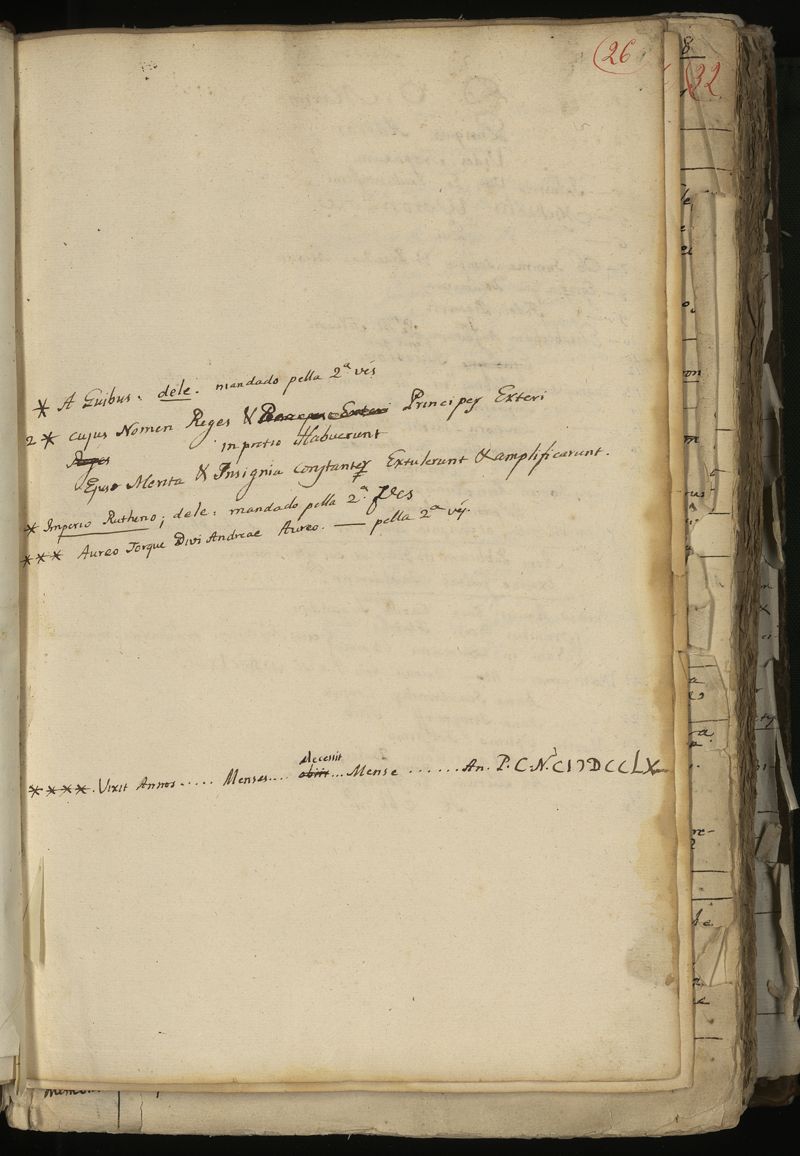 26
32
8
* A Quibus. dele. mandado pella 2ª vés
2 * cujus Nomen Reges & Principes Exteri Principes Exteri
Reges in pretio Habuerunt
Ejus Merita & Insignia constanter Extulerunt & amplificarunt.
* Imperio Rutheno; dele: mandado pella 2ª Ves
*** Aureo Torque Divi Andreae Aureo. — pella 2ª vés.
decessit
**** Vixit Annos..... Menses.... obiit... Mense ...... An. P.C.N. CIƆDCCLX